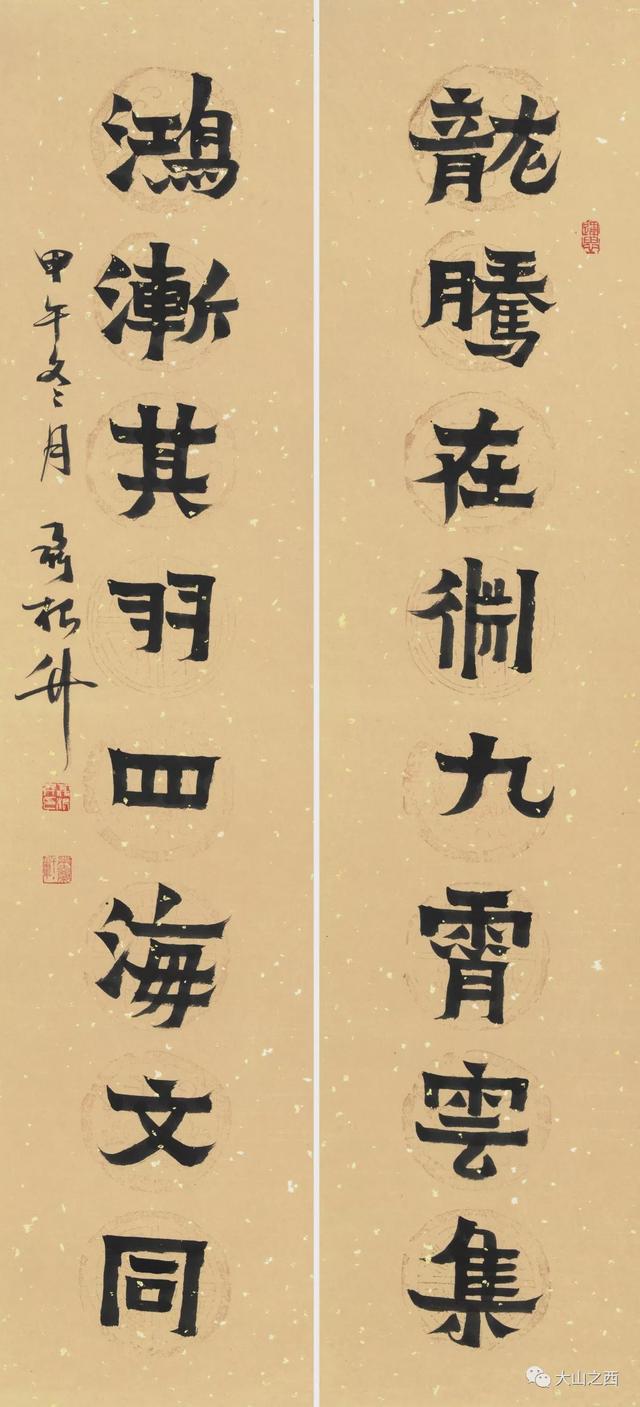 龍騰在淵九霄雲集
鴻漸其羽四海文同
甲午冬月
大山之西